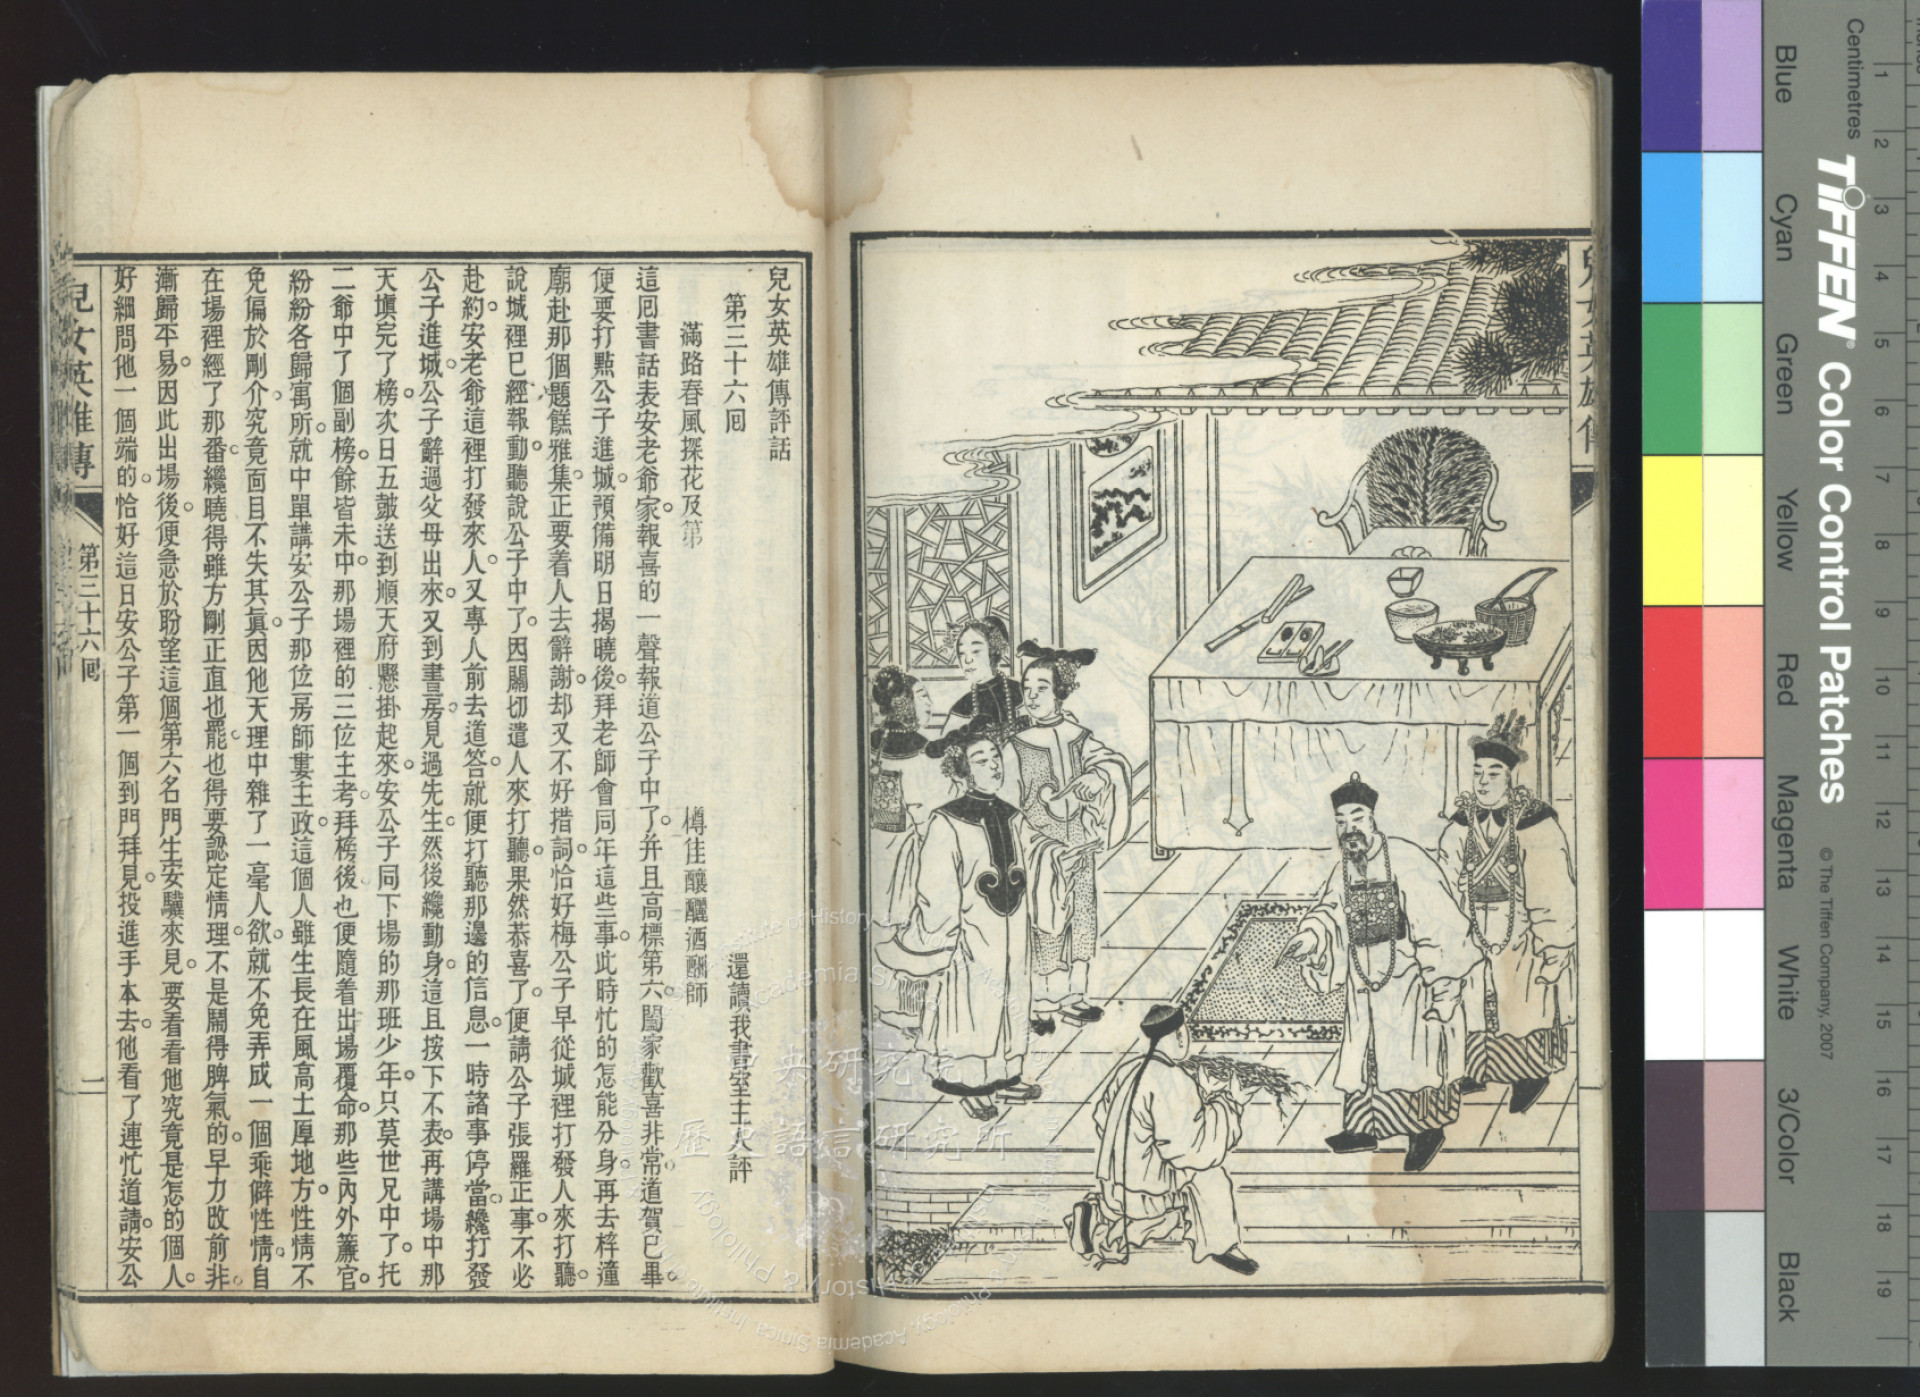 兒女英雄傳
兒女英雄傳評話
第三十六囘
還讀我書室主人評
滿路春風探花及第
樽佳釀酾酒酬師
這囘書話表安老爺家報喜的一聲報道公子中了并且高標第六闔家歡喜非常道賀已畢
便要打點公子進城預備明日揭曉後拜老師會同年這些事此時忙的怎能分身再去梓潼
廟赴那個題糕雅集正要着人去辭謝却又不好措詞恰好梅公子早從城裡打發人來打聽
說城裡已經報動聽說公子中了因關切遣人來打聽果然恭喜了便請公子張羅正事不必
赴約安老爺這裡打發來人又專人前去道答就便打聽那邊的信息一時諸事停當纔打發
公子進城公子辭過父母出來又到書房見過先生然後纔動身這且按下不表再講場中那
天塡完了榜次日五皷送到順天府懸掛起來安公子同下場的那班少年只莫世兄中了托
二爺中了個副榜餘皆未中那場裡的三位主考拜榜後也便隨着出場覆命那些內外簾官
紛紛各歸寓所就中單講安公子那位房師婁主政這個人雖生長在風高土厚地方性情不
免偏於剛介究竟面目不失其眞因他天理中雜了一毫人欲就不免弄成一個乖僻性情自
在場裡經了那番纔曉得雖方剛正直也罷也得要認定情理不是鬧得脾氣的早力改前非
漸歸平易因此出場後便急於盼望這個第六名門生安驥來見要看看他究竟是怎的個人
好細問他一個端的恰好這日安公子第一個到門拜見投進手本去他看了連忙道請安公
兒女英雄傳
第三十六囘
一
中央研究院
歷史語言研究所
Centimetres
TIFFEN Color Control Patches
© The Tiffen Company, 2007
Blue Cyan Green Yellow Red Magenta White 3/Color Black
1 2 3 4 5 6 7 8 9 10 11 12 13 14 15 16 17 18 19